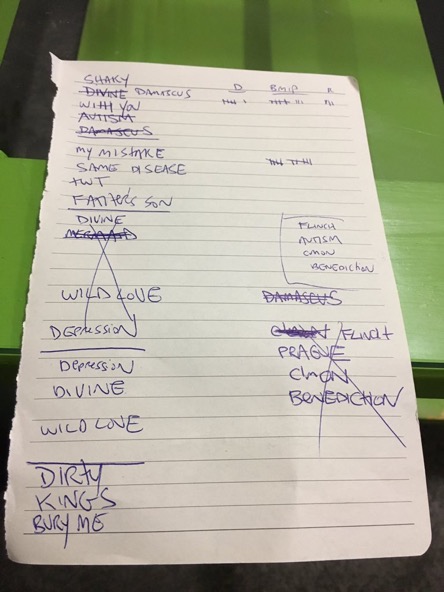 SHAKY
DIVINE DAMASCUS D BMIP R
WITH YOU
AUTISM
DAMASCUS
MY MISTAKE
SAME DISEASE
TWT
FATHER'S SON
DIVINE
MERMAID
WILD LOVE
DEPRESSION
DEPRESSION
DIVINE
WILD LOVE
DIRTY
KINGS
BURY ME
FLINCH
AUTISM
CMON
BENEDICTION
DAMASCUS
FLINCH
PRAGUE
CMON
BENEDICTION